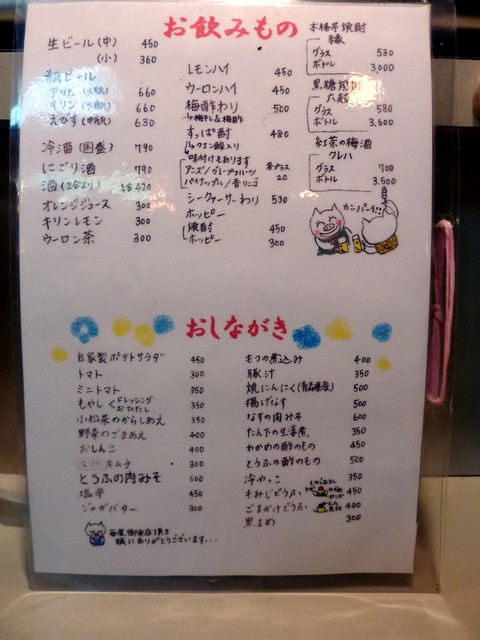 お飲みもの
生ビール(中) 450
(小) 360
瓶ビール
アサヒ(大瓶) 660
キリン(大瓶) 660
えびす(中瓶) 630
冷酒(国盛) 790
にごり酒 790
酒(2合より) 420
オレンジジュース 300
キリンレモン 300
ウーロン茶 300
レモンハイ 450
ウーロンハイ 450
梅酢わり 500
梅干し&梅酢
すっぱ酎 480
クエン酸入り
味付けもあります
アンズ/グレープフルーツ
パイナップル/青リンゴ
各プラス 20
シークァーサーわり 530
ホッピー
焼酎 450
ホッピー 300
本格芋焼酎
縁
グラス 530
ボトル 3,000
黒糖焼酎
グラス 580
ボトル 3,600
紅茶の梅酒
クレハ
グラス 700
ボトル 3,500
カンパーイ!!
おしながき
自家製ポテトサラダ 450
トマト 300
ミニトマト 350
もやし ドレッシング おひたし 350
小松菜のからしあえ 350
野菜のごまあえ 400
おしんこ 400
キムチ 300
とうふの肉みそ 600
塩辛 450
ジャガバター 300
毎度御来店頂き
誠にありがとうございます・・・
もつの煮込み 400
豚汁 350
焼にんにく(青森県産) 500
揚げなす 500
なすの肉みそ 600
たん下の生姜煮 350
わかめの酢のもの 450
とうふの酢のもの 500
冷やっこ 350
もみじどうふ 450
ごまかけどうふ 400
黒まめ 300